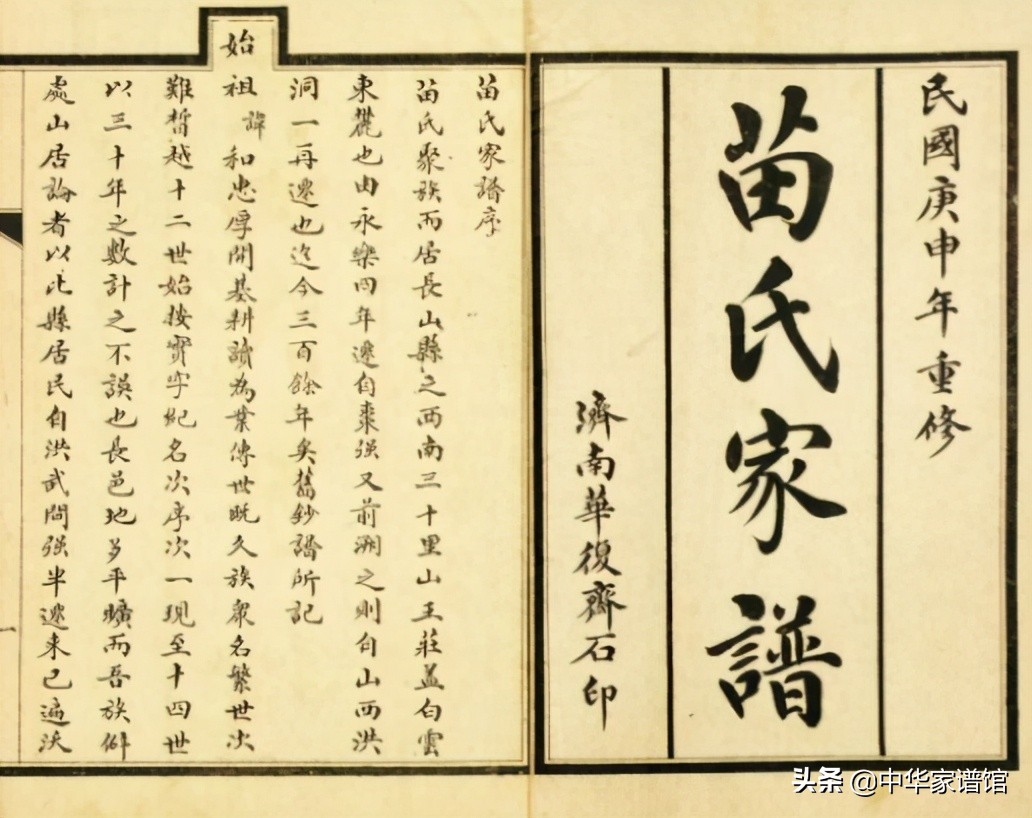 民國庚申年重修
苗氏家譜
濟南華復齊石印
苗氏家譜序
苗氏聚族而居長山縣之西南三十里山王莊蓋白雲
東麓也由永樂四年遷自棗强又前溯之則自山西洪
洞一再遷也迄今三百餘年矣舊鈔譜所記
始祖諱和忠厚開基耕讀為業傳世既久族衆名繁世次
難晳越十二世始按實字紀名次序次一現至十四世
以三十年之數計之不誤也長邑地多平曠而吾族僻
處山居論者以此縣居民自洪武間强半遷来已遍沃
一
头条 @中华家谱馆